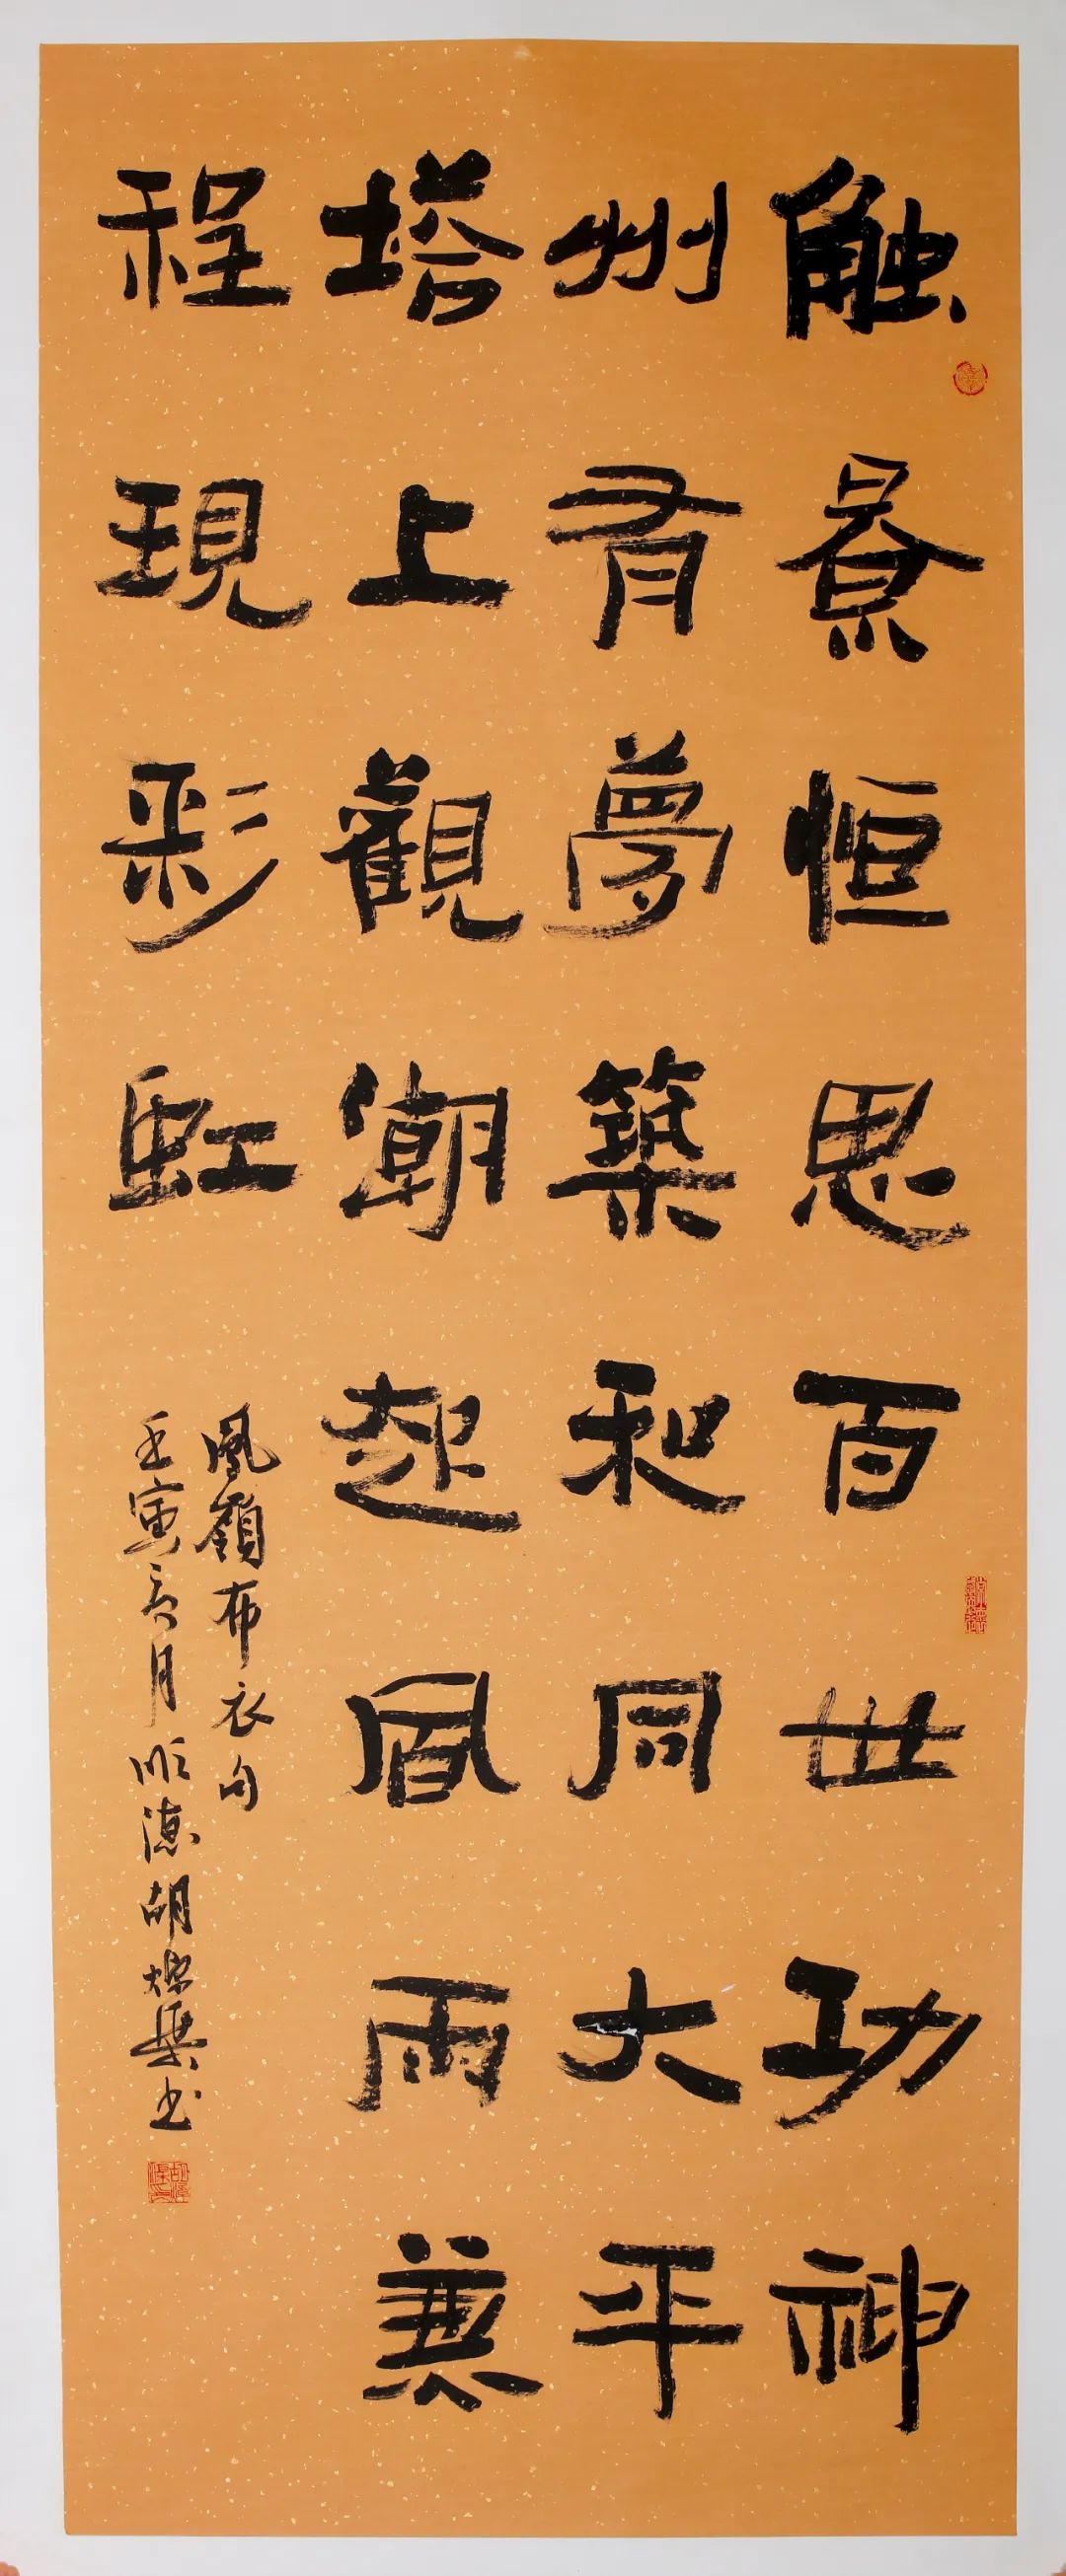 触景恒思百世功神
州有夢築和同大平
塔上觀潮起風雨兼
程現彩虹
鳳嶺布衣句
壬寅月順德胡燦書